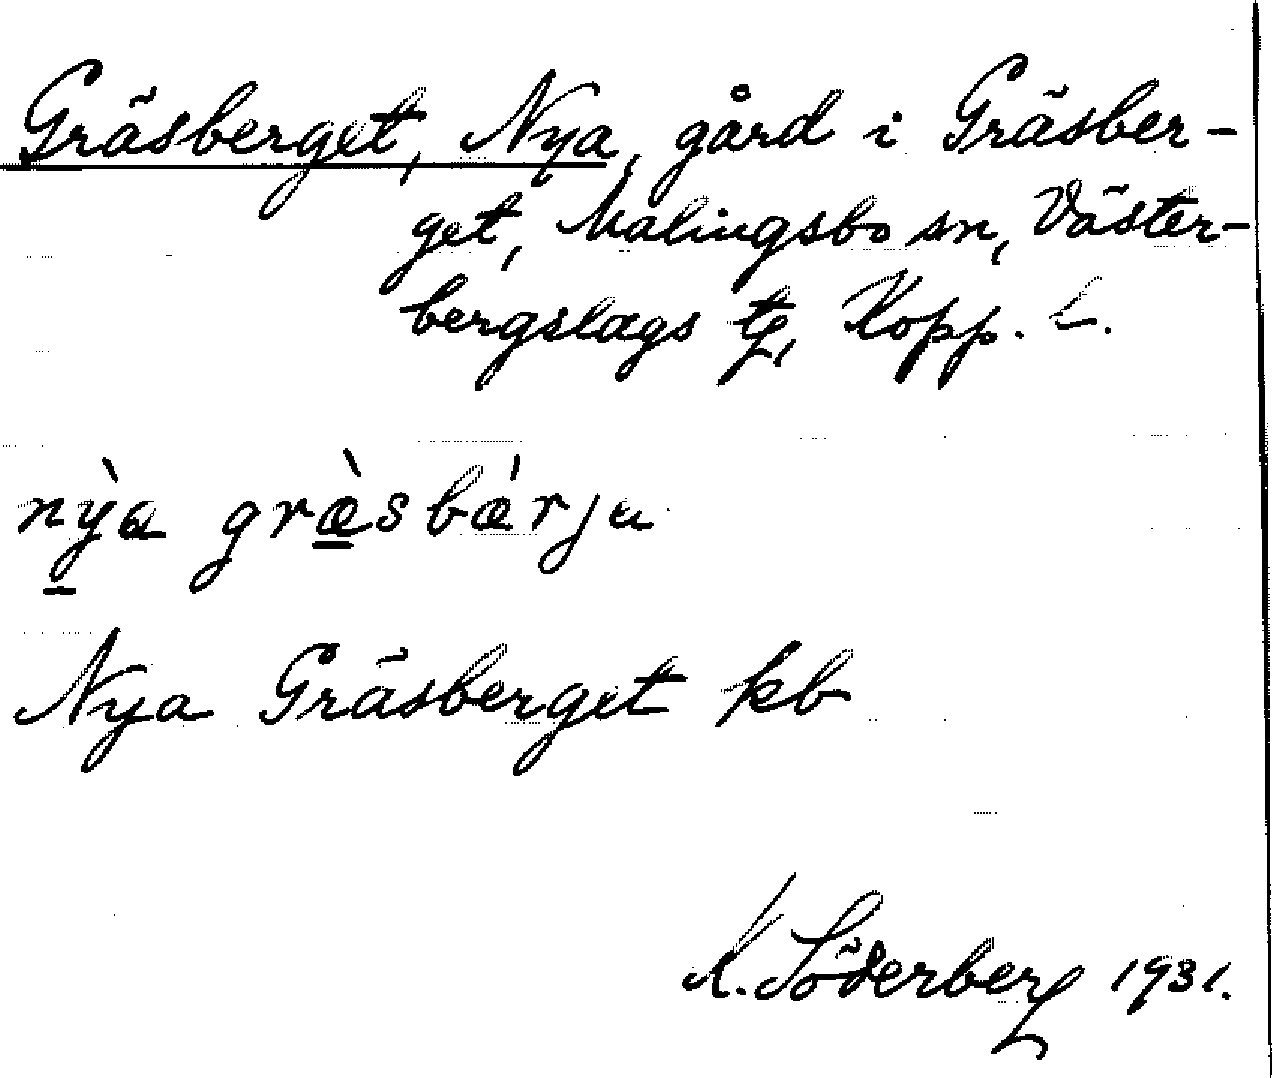 Gräsberget, Nya, gård i Gräsber-
get, Malingsbo sn, Väster-
bergslags tg, Kopp. L.
nỳa græ̀sbǽrja
Nya Gräsberget kb
K. Söderberg 1931.